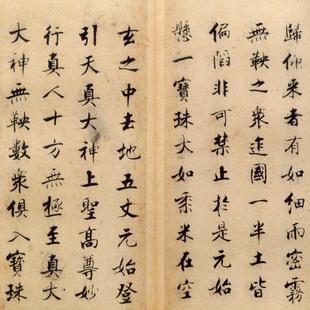 歸仰來者有如細雨密霧
無鞅之衆迮國一半土皆
偏陷非可禁止於是元始
懸一寶珠大如黍米在空
玄之中去地五丈元始登
引天真大神上聖髙尊妙
行真人十方無極至真大
大神無鞅數衆俱入寶珠